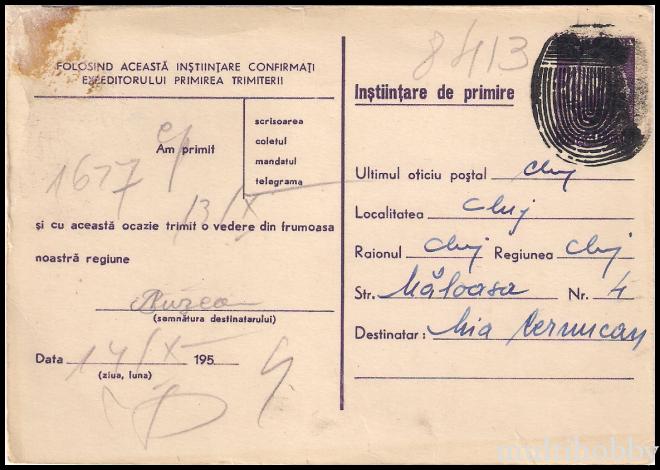 FOLOSIND ACEASTĂ INȘTIINȚARE CONFIRMAȚI
EXPEDITORULUI PRIMIREA TRIMITERII
Am primit
scrisoarea
coletul
mandatul
telegrama
1677
13/X
și cu această ocazie trimit o vedere din frumoasa
noastră regiune
(semnătura destinatarului)
Data 14/X 195
(ziua, luna)
8413
Inștiințare de primire
Ultimul oficiu poștal Cluj
Localitatea Cluj
Raionul Cluj Regiunea Cluj
Str. Nr. 4
Destinatar: Mia
multihobby